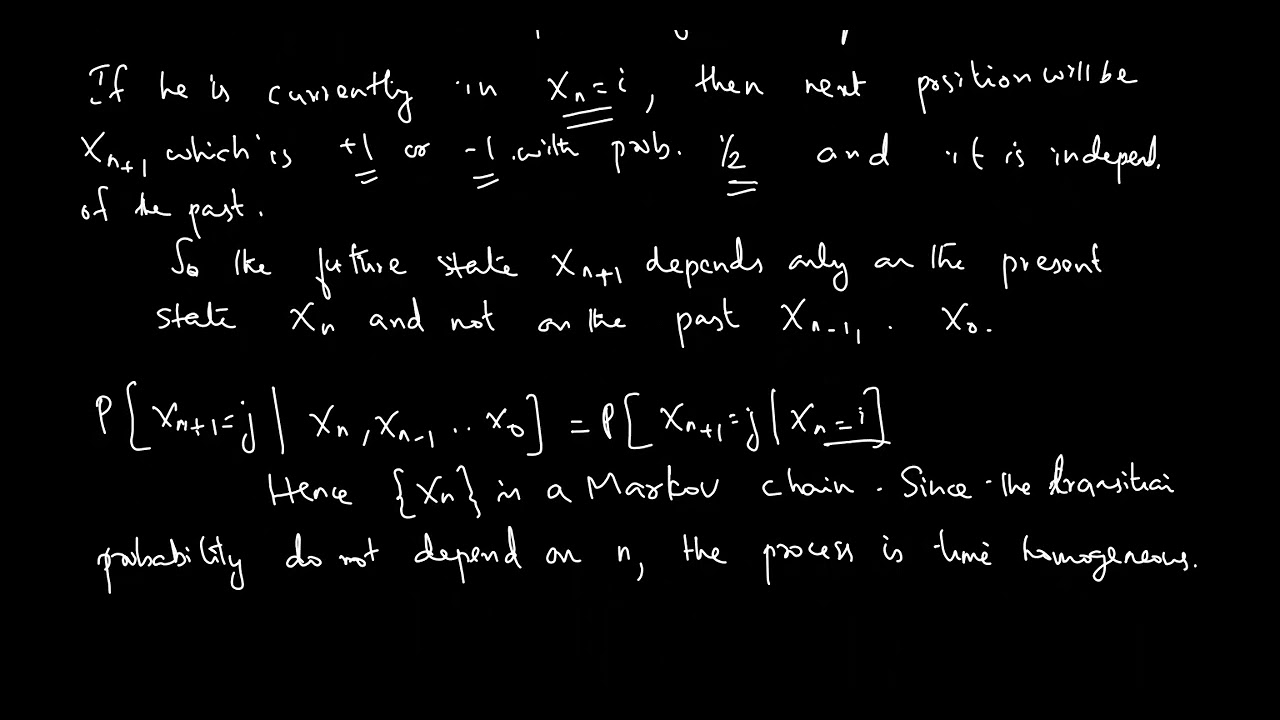 If he is currently in Xₙ = i, then next position will be
Xₙ₊₁ which is +1 or -1 with prob. 1/2 and it is independ.
of the past.
So the future state Xₙ₊₁ depends only on the present
state Xₙ and not on the past Xₙ₋₁, . X₀.
P[Xₙ₊₁=j | Xₙ, Xₙ₋₁ .. X₀] = P[Xₙ₊₁=j | Xₙ=i]
Hence {Xₙ} is a Markov chain. Since the transition
probability do not depend on n, the process is time homogeneous.